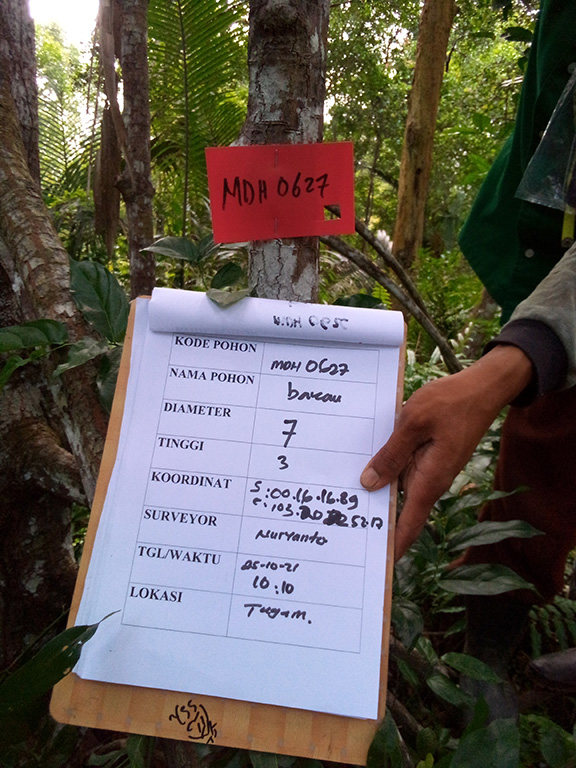 MDH 0627
KODE POHON MDH 0627
NAMA POHON
DIAMETER 7
TINGGI 3
KOORDINAT S:00.16.16.89
E:103.20 52.17
SURVEYOR Nuryanto
TGL/WAKTU 05-10-21
10:10
LOKASI